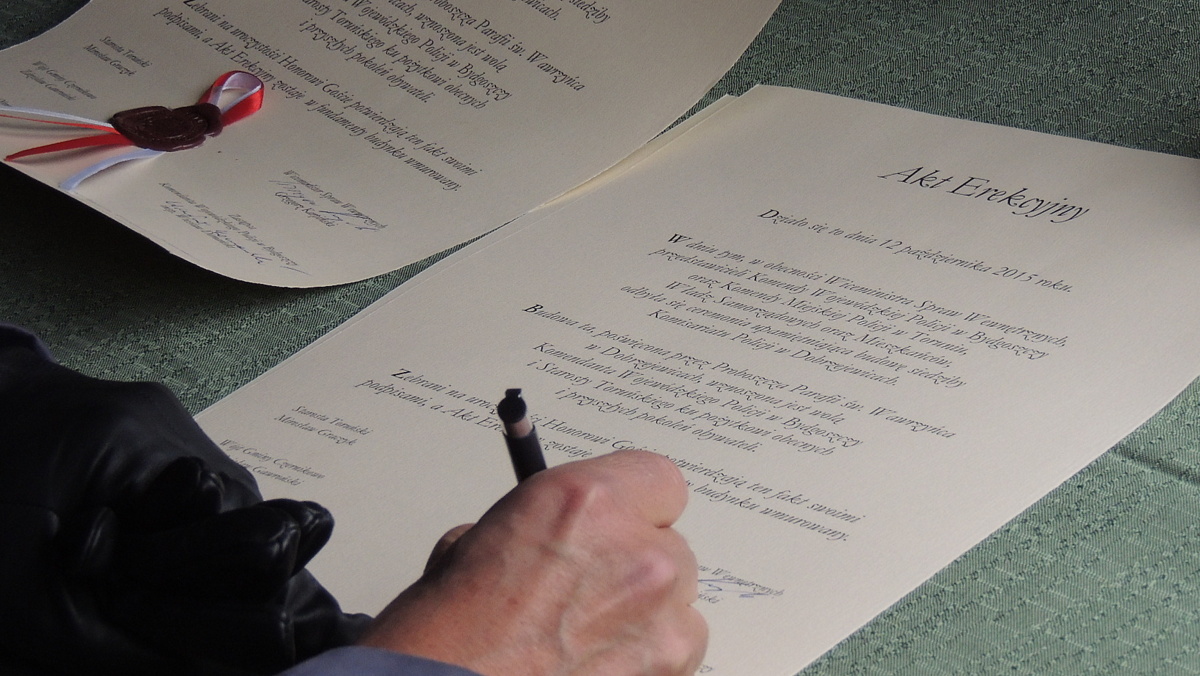 siedziby
Proboszcza Parafii św. Wawrzyńca
wznoszona jest wolą
Wojewódzkiego Policji w Bydgoszczy
Starosty Toruńskiego ku pożytkowi obecnych
i przyszłych pokoleń obywateli.
Zebrani na uroczystości Honorowi Goście potwierdzają ten fakt swoimi
podpisami, a Akt Erekcyjny zostaje w fundamenty budynku wmurowany.
Starosta Toruński
Mirosław Graczyk
Wójt Gminy Czernikowo
Zdzisław Gawroński
Wiceminister Spraw Wewnętrznych
Zastępca
Komendanta Wojewódzkiego Policji w Bydgoszczy
Akt Erekcyjny
Działo się to dnia 12 października 2015 roku.
W dniu tym, w obecności Wiceministra Spraw Wewnętrznych,
przedstawicieli Komendy Wojewódzkiej Policji w Bydgoszczy
oraz Komendy Miejskiej Policji w Toruniu,
Władz Samorządowych oraz Mieszkańców,
odbyła się ceremonia upamiętniająca budowę siedziby
Komisariatu Policji w Dobrzejewicach.
Budowa ta, poświęcona przez Proboszcza Parafii św. Wawrzyńca
w Dobrzejewicach, wznoszona jest wolą
Komendanta Wojewódzkiego Policji w Bydgoszczy
i Starosty Toruńskiego ku pożytkowi obecnych
i przyszłych pokoleń obywateli.
Zebrani na Honorowi Goście potwierdzają ten fakt swoimi
podpisami, a Akt zostaje budynku wmurowany.
Starosta Toruński
Mirosław Graczyk
Wójt Gminy Czernikowo
Gawroński
Wewnętrznych